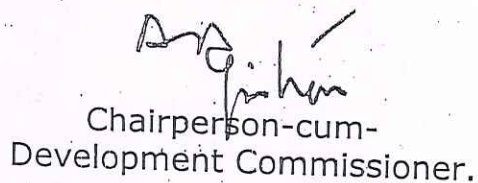 Chairperson-cum-
Development Commissioner.